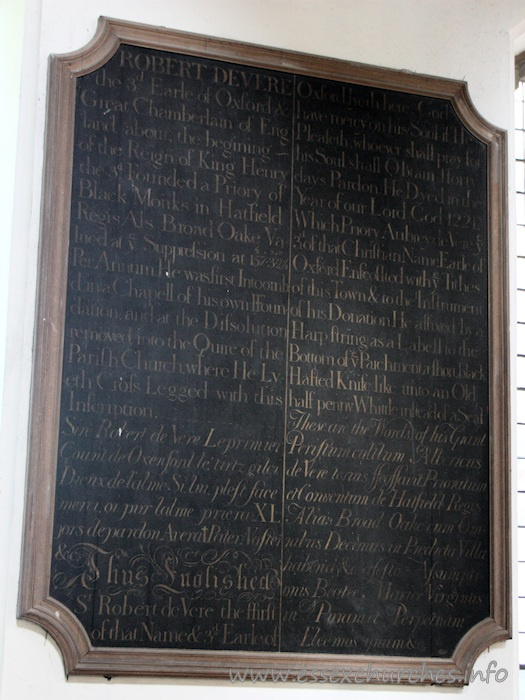 ROBERT DEVERE
the 3.d Earle of Oxford &
Great Chamberlain of Eng
land about, the begining
of the Reign of King Henry
the 3.d Founded a Priory of
Black Monks in Hatfield
Regis Als Broad Oake Va
lued at ye Suppression at
Per Annum He was first Intomb
'd in a Chapell of his own Foun
dation, and at the Dissolution
removed into the Quire of the
Parish Church where He Ly
eth Cross Legged with this
Inscription.
Sire Robert de Vere Le primier
Count de Oxenford le tirtz gist ci
Dieux de l'alme Si lui plest face
merci, oi pur l'alme priera XL
jors de pardon Avera Pater Noster
&c
Thus Englished
Sr Robert de Vere the first
of that Name & 3.d Earle of
Oxford lyeth here God
have mercy on his Soul if He
Pleaseth, whoever shall pray for
his Soul shall Obtain Forty
days Pardon. He Dyed in the
Year of our Lord God 1221
Which Priory Aubrey de Vere ye
3.d of that Christian Name Earle of
Oxford Enfeoffed with ye Tithes
of this Town & to the Instrument
of his Donation He affixed by a
Harp string as a Label to the
Bottom of ye Parchment a short black
Hafted Knife like unto an Old
half penny Whittle instead of a Seal
These are the Words of his Grant
de Vere
de Hatfield Regis
Alias Broad Oake cum
Decimus in Predicta Villa
Mariæ Virginis
in Puram & Perpetuam
Eleemosynam &c
www.essexchurches.info